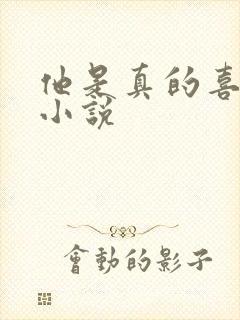 他是真的喜
小說
會動的影子